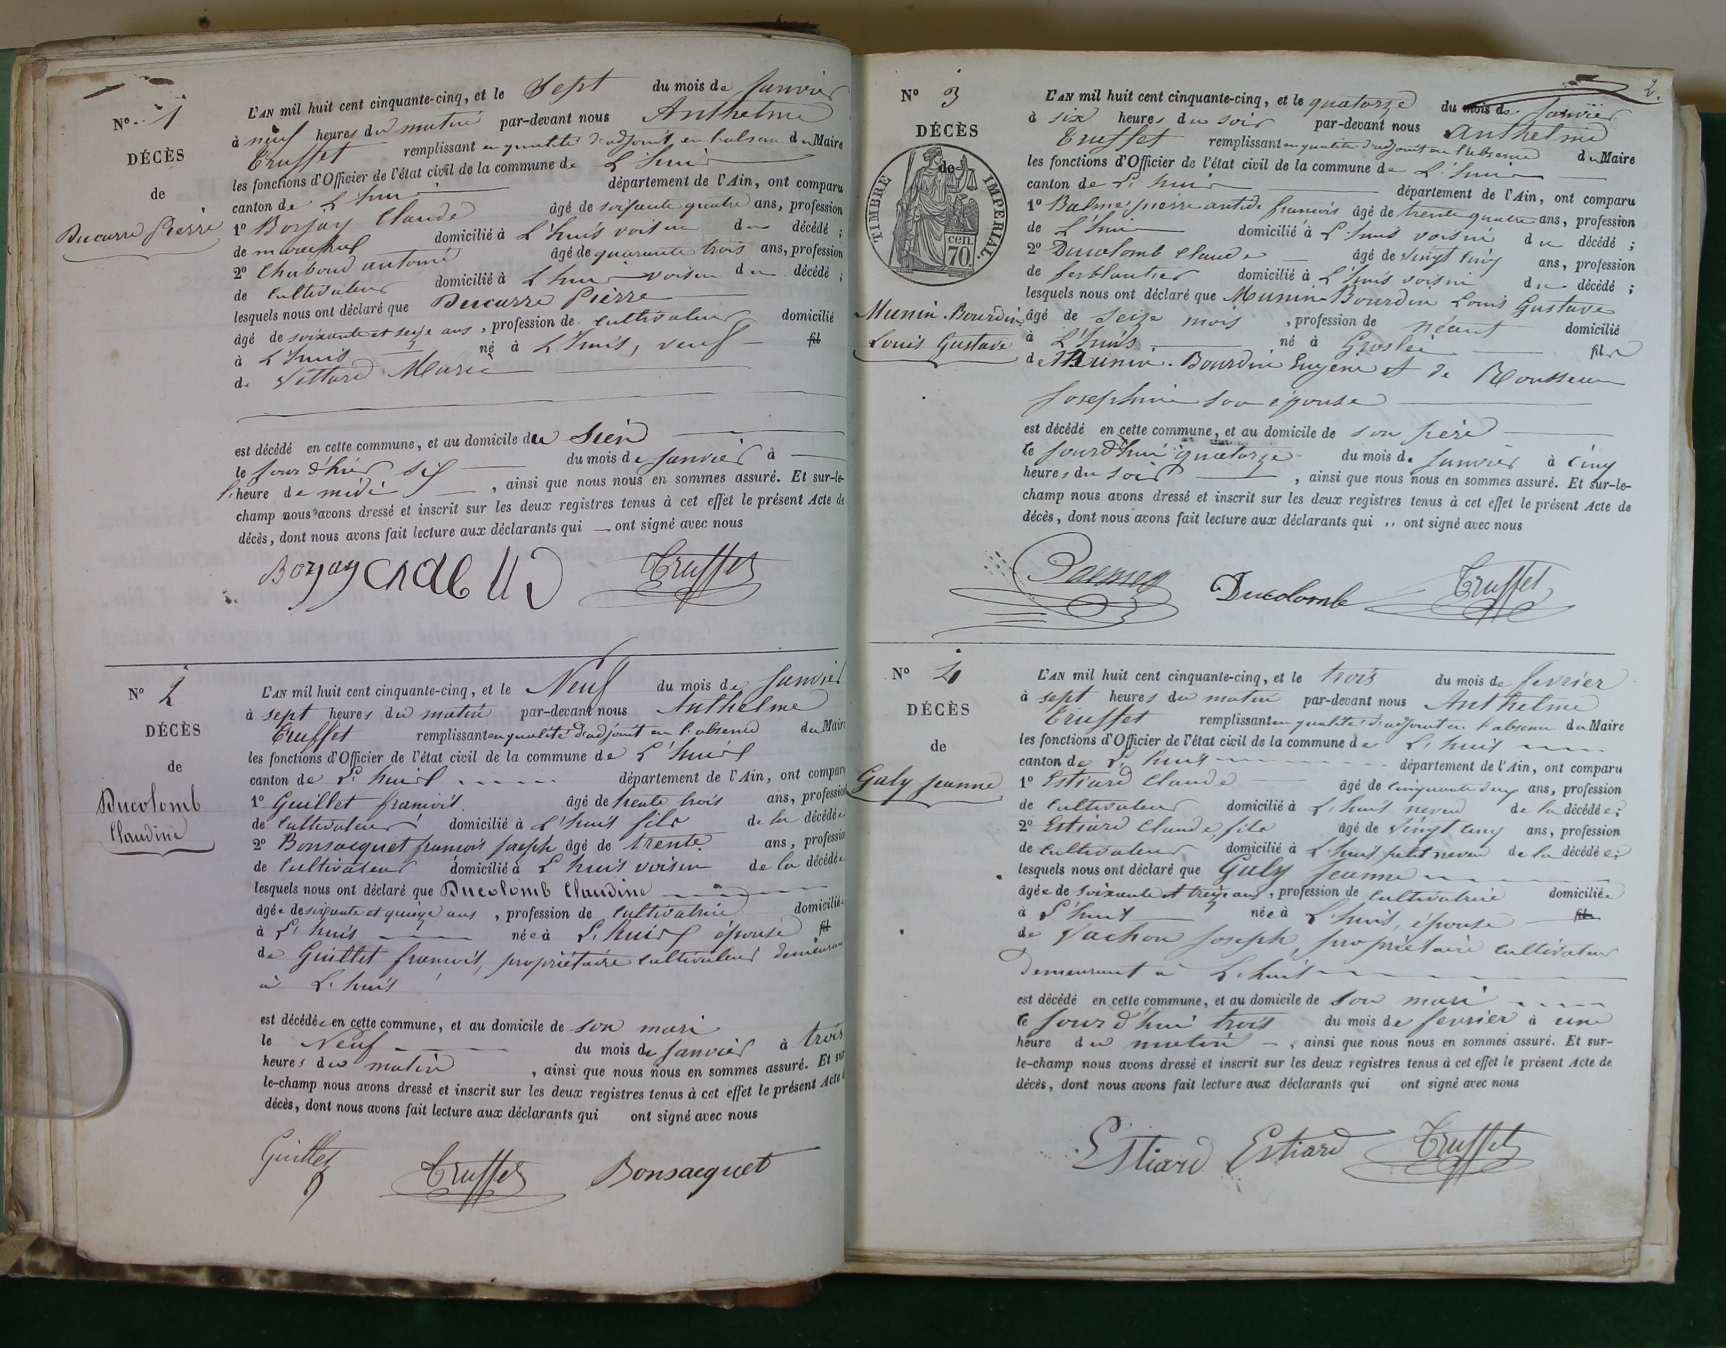 N° 1
DÉCÈS
de
Ducarre Pierre
L'AN mil huit cent cinquante-cinq, et le Sept du mois de Janvier
à neuf heures du matin par-devant nous Anthelme
Truffet remplissant en qualité d'adjoint en l'absence du Maire
les fonctions d'Officier de l'état civil de la commune de L'huis
canton de L'huis département de l'Ain, ont comparu
1° Borjay Claude âgé de soixante quatre ans, profession
de marechal domicilié à L'huis voisin du décédé ;
2° Chaboud antoine âgé de quarante trois ans, profession
de Cultivateur domicilié à L'huis voisin du décédé ;
lesquels nous ont déclaré que Ducarre Pierre
âgé de soixante et seize ans, profession de cultivateur domicilié
à L'huis né à L'huis, veuf fil
de Vittard Marie
est décédé en cette commune, et au domicile du Sien
le jour d'hier six du mois de Janvier à
l'heure de midi, ainsi que nous nous en sommes assuré. Et sur-le-
champ nous avons dressé et inscrit sur les deux registres tenus à cet effet le présent Acte de
décès, dont nous avons fait lecture aux déclarants qui ont signé avec nous
Truffet
N° 2
DÉCÈS
de
Ducolomb
Claudine
L'AN mil huit cent cinquante-cinq, et le Neuf du mois de Janvier
à sept heures du matin par-devant nous Anthelme
Truffet remplissant en qualité d'adjoint en l'absence du Maire
les fonctions d'Officier de l'état civil de la commune de L'huis
canton de L'huis département de l'Ain, ont comparu
1° Guillet françois âgé de trente trois ans, profession
de Cultivateur domicilié à L'huis fils de la décédée
2° Bonsacquet françois joseph âgé de trente ans, profession
de Cultivateur domicilié à L'huis voisin de la décédée
lesquels nous ont déclaré que Ducolomb Claudine
âgée de soixante et quinze ans, profession de cultivatrice domiciliée
à L'huis née à L'huis épouse fil
de Guillet françois, propriétaire cultivateur demeurant
à L'huis
est décédée en cette commune, et au domicile de son mari
le Neuf du mois de Janvier à trois
heures du matin, ainsi que nous nous en sommes assuré. Et sur
le-champ nous avons dressé et inscrit sur les deux registres tenus à cet effet le présent Acte
décès, dont nous avons fait lecture aux déclarants qui ont signé avec nous
Guillet Truffet Bonsacquet
2.
N° 3
DÉCÈS
de
TIMBRE IMPERIAL.
70 cen.
Munin-Bourdin
Louis Gustave
L'AN mil huit cent cinquante-cinq, et le quatorze du mois de Janvier
à six heures du soir par-devant nous Anthelme
Truffet remplissant en qualité d'adjoint en l'absence du Maire
les fonctions d'Officier de l'état civil de la commune de L'huis
canton de L'huis département de l'Ain, ont comparu
1° Balme pierre antide françois âgé de trente quatre ans, profession
de L'huis domicilié à L'huis voisin du décédé ;
2° Ducolomb Claude âgé de vingt cinq ans, profession
de ferblantier domicilié à L'huis voisin du décédé ;
lesquels nous ont déclaré que Munin-Bourdin Louis Gustave
âgé de seize mois, profession de néant domicilié
à L'huis né à Groslée fils
de Munin-Bourdin Eugene et de Rousseau
Josephine son épouse
est décédé en cette commune, et au domicile de son père
le jourd'hui quatorze du mois de Janvier à cinq
heures du soir, ainsi que nous nous en sommes assuré. Et sur-le-
champ nous avons dressé et inscrit sur les deux registres tenus à cet effet le présent Acte de
décès, dont nous avons fait lecture aux déclarants qui ont signé avec nous
Ducolomb Truffet
N° 4
DÉCÈS
de
Galy Jeanne
L'AN mil huit cent cinquante-cinq, et le trois du mois de fevrier
à sept heures du matin par-devant nous Anthelme
Truffet remplissant en qualité d'adjoint en l'absence du Maire
les fonctions d'Officier de l'état civil de la commune de L'huis
canton de L'huis département de l'Ain, ont comparu
1° Estiard Claude âgé de cinquante cinq ans, profession
de Cultivateur domicilié à L'huis neveu de la décédée ;
2° Estiard Claude fils âgé de vingt cinq ans, profession
de Cultivateur domicilié à L'huis petit neveu de la décédée ;
lesquels nous ont déclaré que Galy Jeanne
âgée de soixante et treize ans, profession de cultivatrice domiciliée
à L'huis née à L'huis, épouse fil
de Vachon Joseph, propriétaire cultivateur
demeurant à L'huis
est décédé en cette commune, et au domicile de son mari
le jourd'hui trois du mois de fevrier à une
heure du matin, ainsi que nous nous en sommes assuré. Et sur-
le-champ nous avons dressé et inscrit sur les deux registres tenus à cet effet le présent Acte de
décès, dont nous avons fait lecture aux déclarants qui ont signé avec nous
Estiard Estiard Truffet